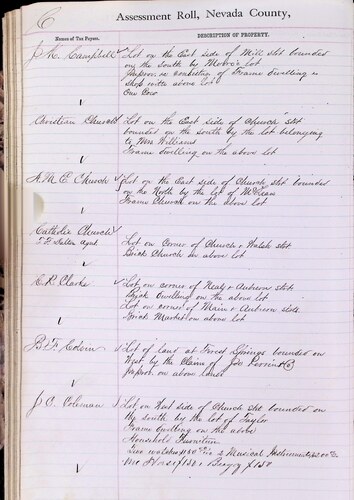 C
Assessment Roll, Nevada County,
Names of Tax Payers.
DESCRIPTION OF PROPERTY.
J. M. Campbell
Lot on the East side of Mill stt bounded
on the South by lot
Improv consisting of Frame dwelling &
Shop with above lot
One Cow
Christian Church
Lot on the East side of Church stt
bounded on the south by the lot belonging
to Mrs Williams
Frame dwelling on the above lot
A. M. E. Church
Lot on the East side of Church stt bounded
on the North by the lot of
Frame Church on the above lot
Catholic Church
Agent
Lot on Corner of Church & Walsh stt
Brick Church on above lot
C. R. Clarke
Lot on corner of Neal & Auburn stts
Brick dwelling on the above lot
Lot on corner of Main & Auburn stts
Brick Market on above lot
B. F. Colvin
Lot of land at Forest Springs bounded on
West by the Claim of Jos Perrin
Improv. on above land
J. C. Coleman
Lot on East side of Church stt bounded on
the South by the lot of Taylor
Frame dwelling on the above
Household Furniture
Two watches 2 Musical Instruments
One Horse Buggy $150